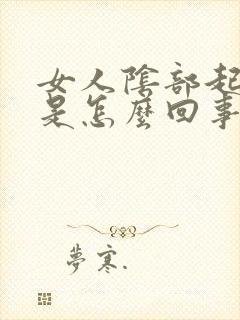 女人陰部起
是怎麼回事
夢寒.